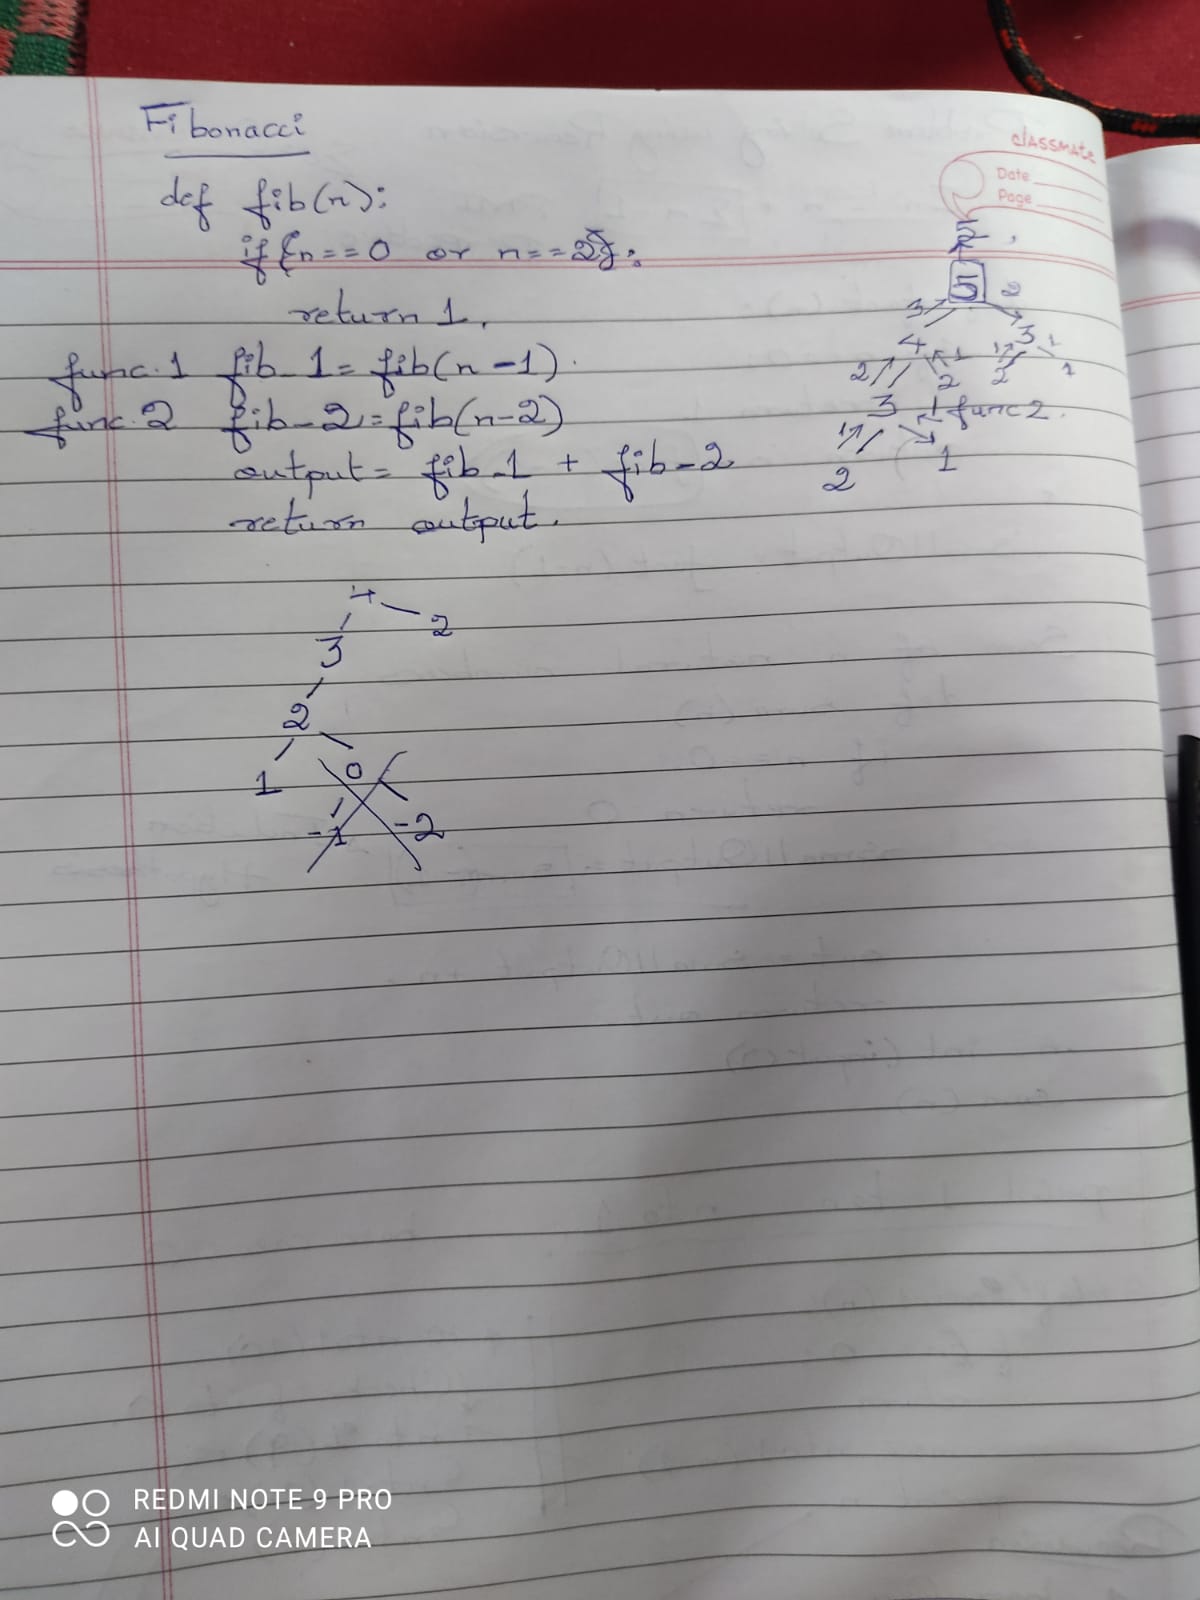 Fibonacci
classmate
Date
Page
def fib(n):
if {n==0 or n==2}:
return 1.
func.1 fib-1 = fib(n-1).
func.2 fib-2 = fib(n-2)
output = fib-1 + fib-2
return output.
5
5
3 2
4 3
2 1 1 1
2 2 1
3 1 func 2.
1
2 1
4
2
3
2
1 0
-1 -2
REDMI NOTE 9 PRO
AI QUAD CAMERA